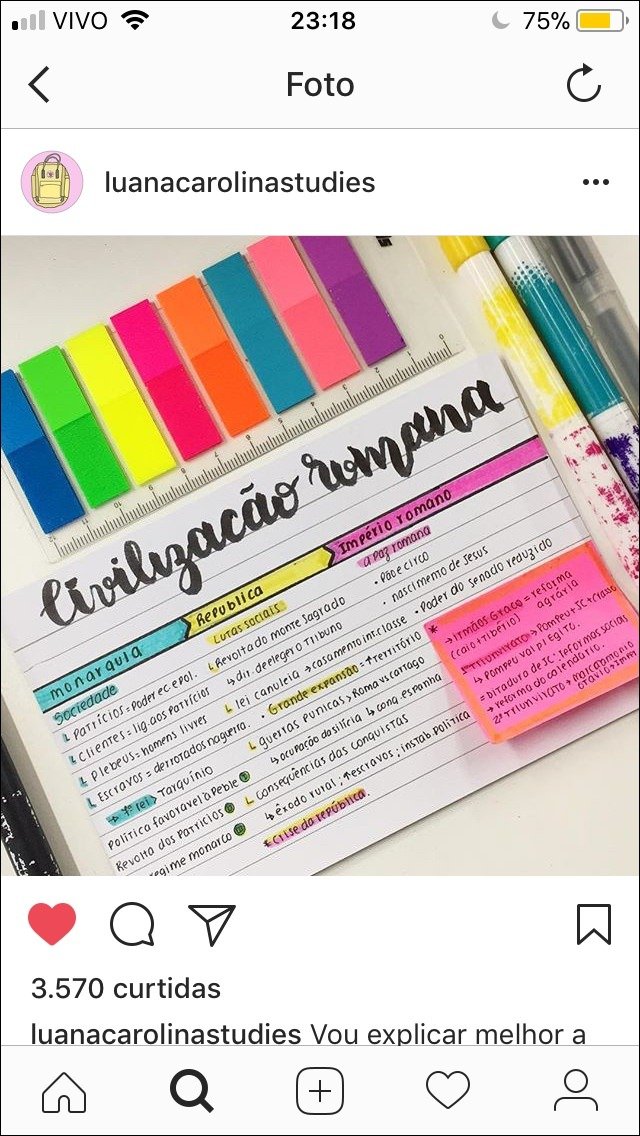 VIVO 23:18 75%
Foto
luanacarolinastudies
Civilização romana
monarquia
República
Império romano
Sociedade
↳ Patrícios = poder ec e pol.
↳ Clientes = lig. aos patrícios
↳ Plebeus = homens livres
↳ Escravos = derrotados na guerra.
→ 7º rei Tarquínio
Política favorável à Plebe
Revolta dos Patrícios
regime monarco
Lutas sociais
↳ Revolta do monte Sagrado
↳ dir. de eleger o Tribuno
↳ lei canuleia → casamento inrclasse
• Grande expansão = ↑ território
↳ guerras punicas > Roma vs cartago
↳ ocupação da silícia ↳ conq. espanha
↳ Conseqüências das conquistas
↳ êxodo rural; ↑ escravos; instab. política
* Crise da república.
a paz romana
• Pão e circo
• nascimento de Jesus
• Poder do senado reduzido
* → irmãos Graco = reforma
(caio + tibério) agrária
Triunvirato → Pompeu + JC + crasso
↳ Pompeu vai p/ Egito.
= ditadura de JC: reformas sociais
→ reforma do calendário.
2º triunvirato → marco Antônio
3.570 curtidas
luanacarolinastudies Vou explicar melhor a